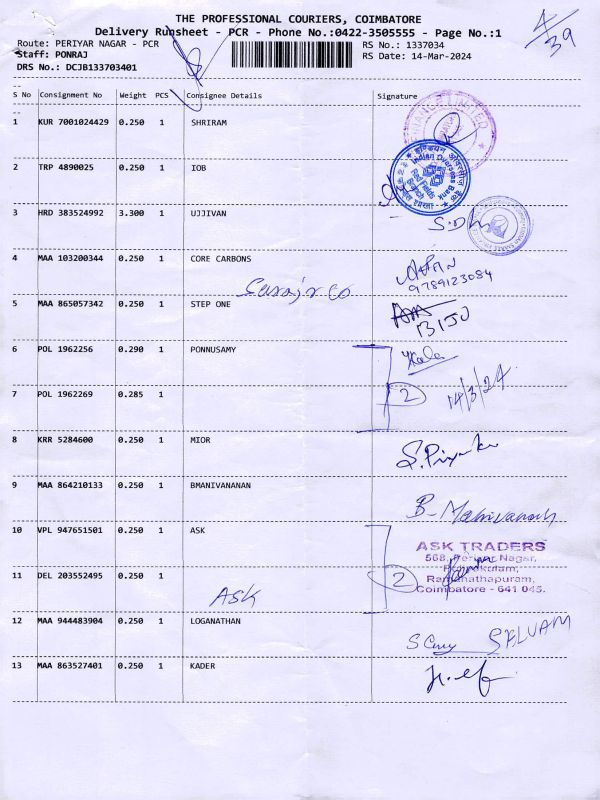 THE PROFESSIONAL COURIERS, COIMBATORE
Delivery Runsheet - PCR - Phone No.:0422-3505555 - Page No.:1
4/39
Route: PERIYAR NAGAR - PCR
RS No.: 1337034
Staff: PONRAJ
RS Date: 14-Mar-2024
DRS No.: DCJB133703401
S No Consignment No Weight PCS Consignee Details Signature
1 KUR 7001024429 0.250 1 SHRIRAM
FINANCE LIMITED
2 TRP 4890025 0.250 1 IOB
Indian Overseas Bank
Red Fields
Branch
3 HRD 383524992 3.300 1 UJJIVAN
4 MAA 103200344 0.250 1 CORE CARBONS
9789123084
5 MAA 865057342 0.250 1 STEP ONE
BIJU
6 POL 1962256 0.290 1 PONNUSAMY
Kala
7 POL 1962269 0.285 1
2 14/3/24
8 KRR 5284600 0.250 1 MIOR
S. Priyanka
9 MAA 864210133 0.250 1 BMANIVANANAN
B. Manivanan
10 VPL 947651501 0.250 1 ASK
ASK TRADERS
568, Periyar Nagar,
Pulirakulam,
Ramanathapuram,
Coimbatore - 641 045.
11 DEL 203552495 0.250 1
ASK
2
12 MAA 944483904 0.250 1 LOGANATHAN
SELVAM
13 MAA 863527401 0.250 1 KADER